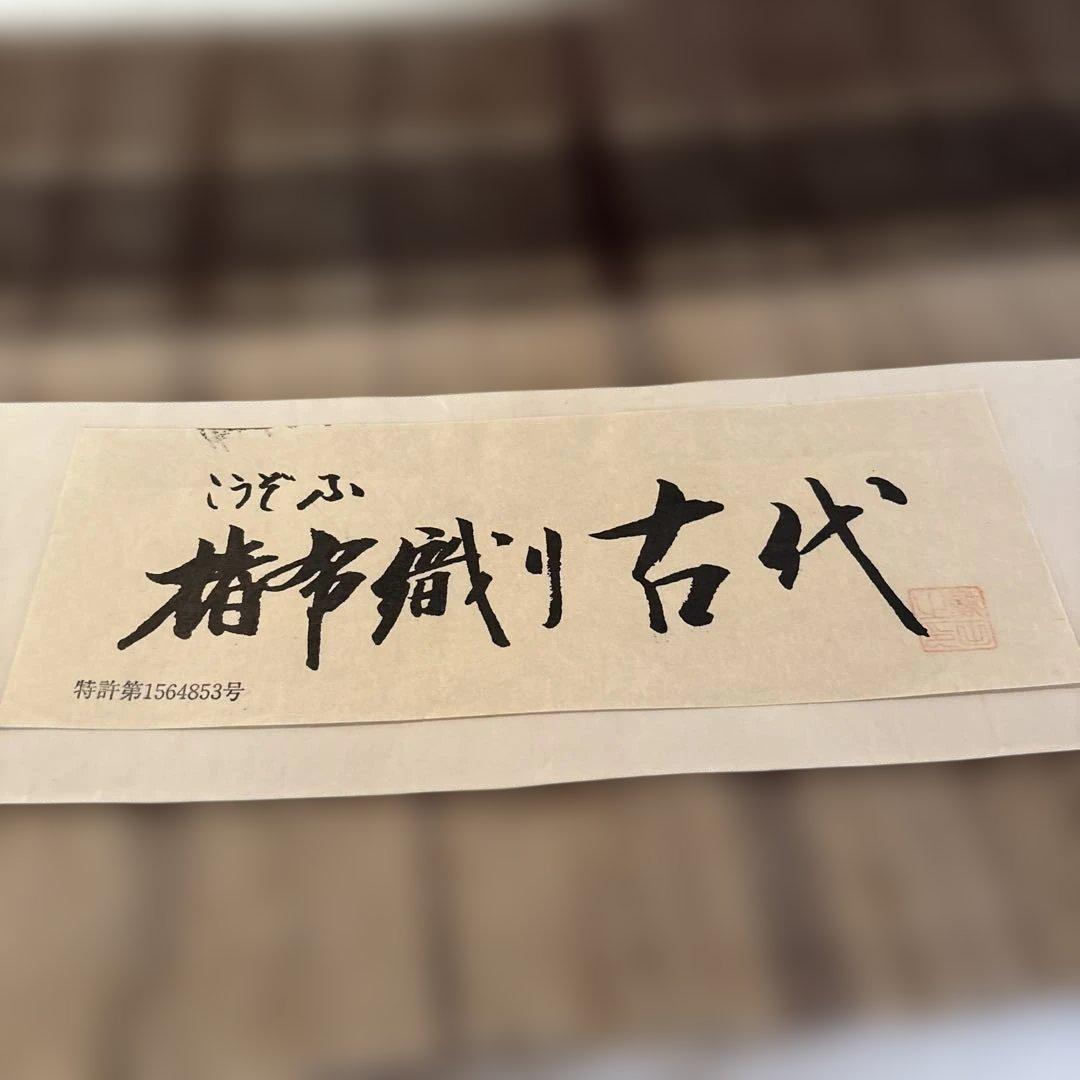 こうぞふ
楮布織り古代
特許第1564853号